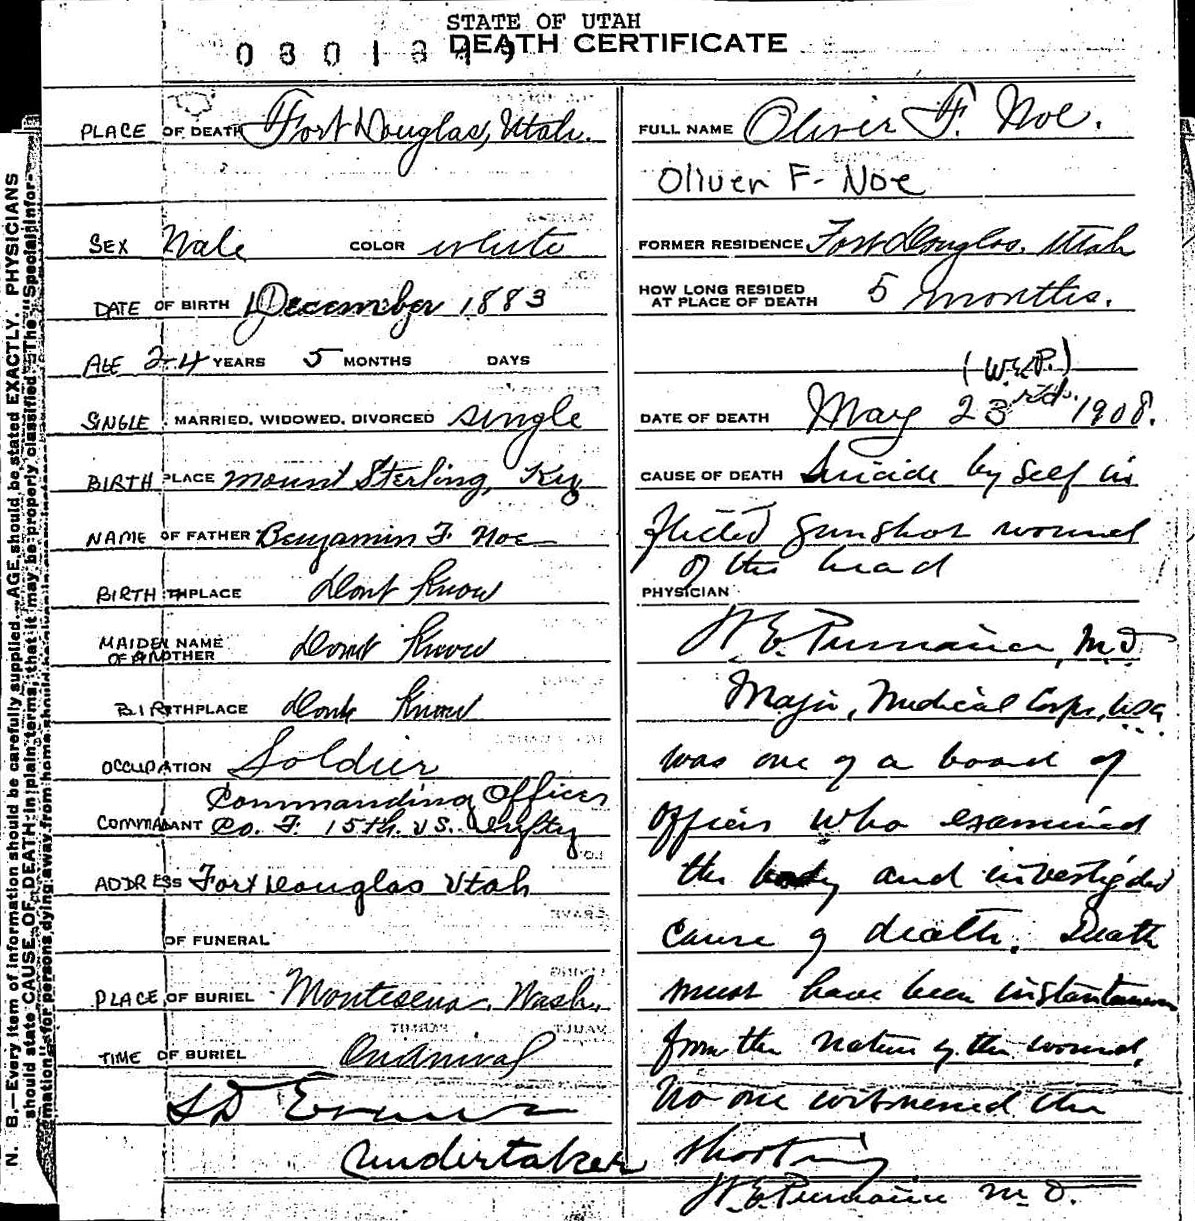 STATE OF UTAH
DEATH CERTIFICATE
PLACE OF DEATH Fort Douglas, Utah.
SEX Male COLOR white
DATE OF BIRTH December 1883
AGE 24 YEARS 5 MONTHS DAYS
SINGLE, MARRIED, WIDOWED, DIVORCED single
BIRTH PLACE Mount Sterling, Ky
NAME OF FATHER Benjamin F. Noe
BIRTHPLACE Dont Know
MAIDEN NAME OF MOTHER Dont Know
BIRTHPLACE Dont Know
OCCUPATION Soldier
Commanding Officer
COMMADANT Co. F. 15th US. Infty
ADDRESS Fort Douglas Utah
OF FUNERAL
PLACE OF BURIEL Montesena, Wash.
TIME OF BURIEL On arrival
S D Evans
undertaker
FULL NAME Oliver F. Noe.
Oliver F- Noe
FORMER RESIDENCE Fort Douglas, Utah
HOW LONG RESIDED AT PLACE OF DEATH 5 months.
(W.E.P.)
DATE OF DEATH May 23rd. 1908.
CAUSE OF DEATH Suicide by self in
flicted gunshot wound
of the head
PHYSICIAN
W. E. Purviance, M.D.
Major, Medical Corps, USA
was one of a board of
officers who examined
the body and investigated
cause of death. Death
must have been instantaneous
from the nature of the wound.
No one witnessed the
shooting
W. E. Purviance M.D.
N. B.—Every item of information should be carefully supplied. AGE should be stated EXACTLY. PHYSICIANS
should state CAUSE OF DEATH in plain terms, that it may be properly classified. The "Special Infor-
mation" for persons dying away from home should